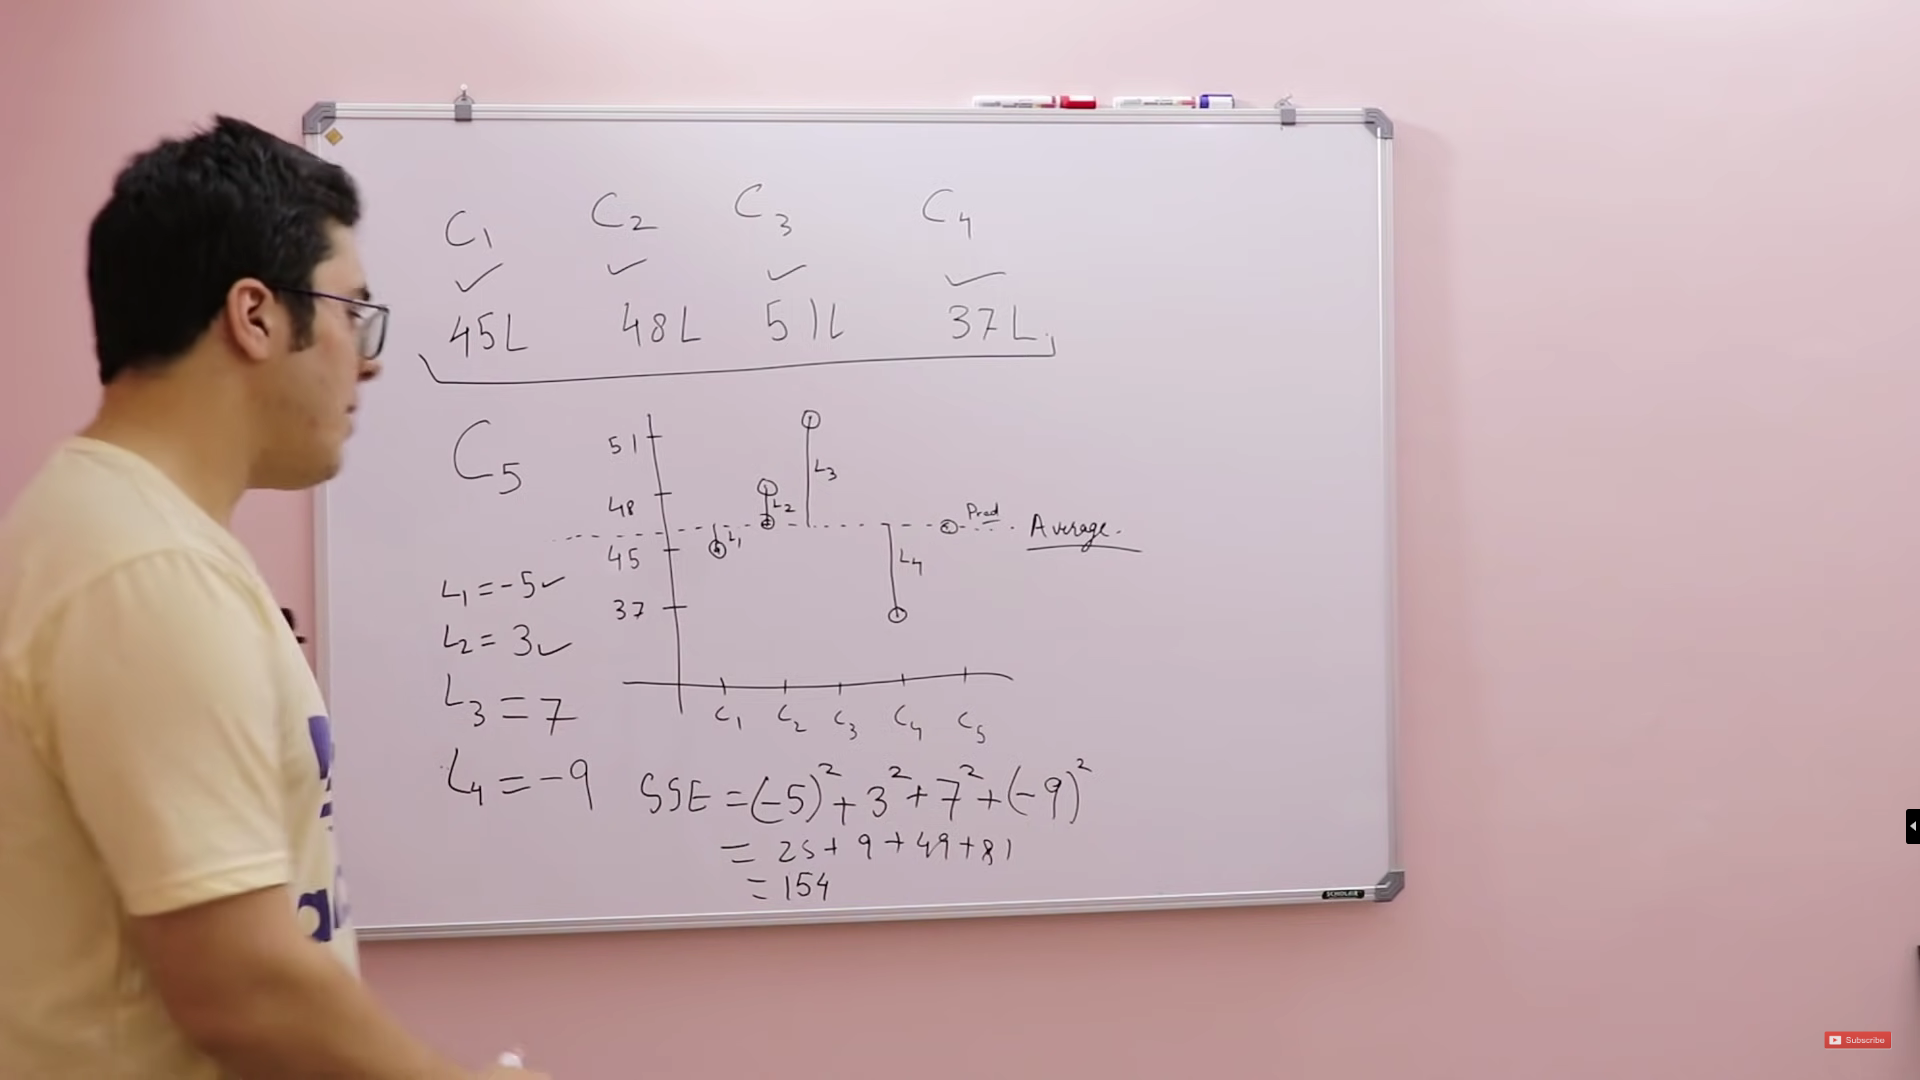 C1 C2 C3 C4
✓ ✓ ✓ ✓
45L 48L 51L 37L
C5
51
48
45
37
L1
L2
L3
L4
Pred
Average.
C1 C2 C3 C4 C5
L1 = -5 ✓
L2 = 3 ✓
L3 = 7
L4 = -9
SSE = (-5)² + 3² + 7² + (-9)²
= 25 + 9 + 49 + 81
= 154
SCHOLAR
Subscribe